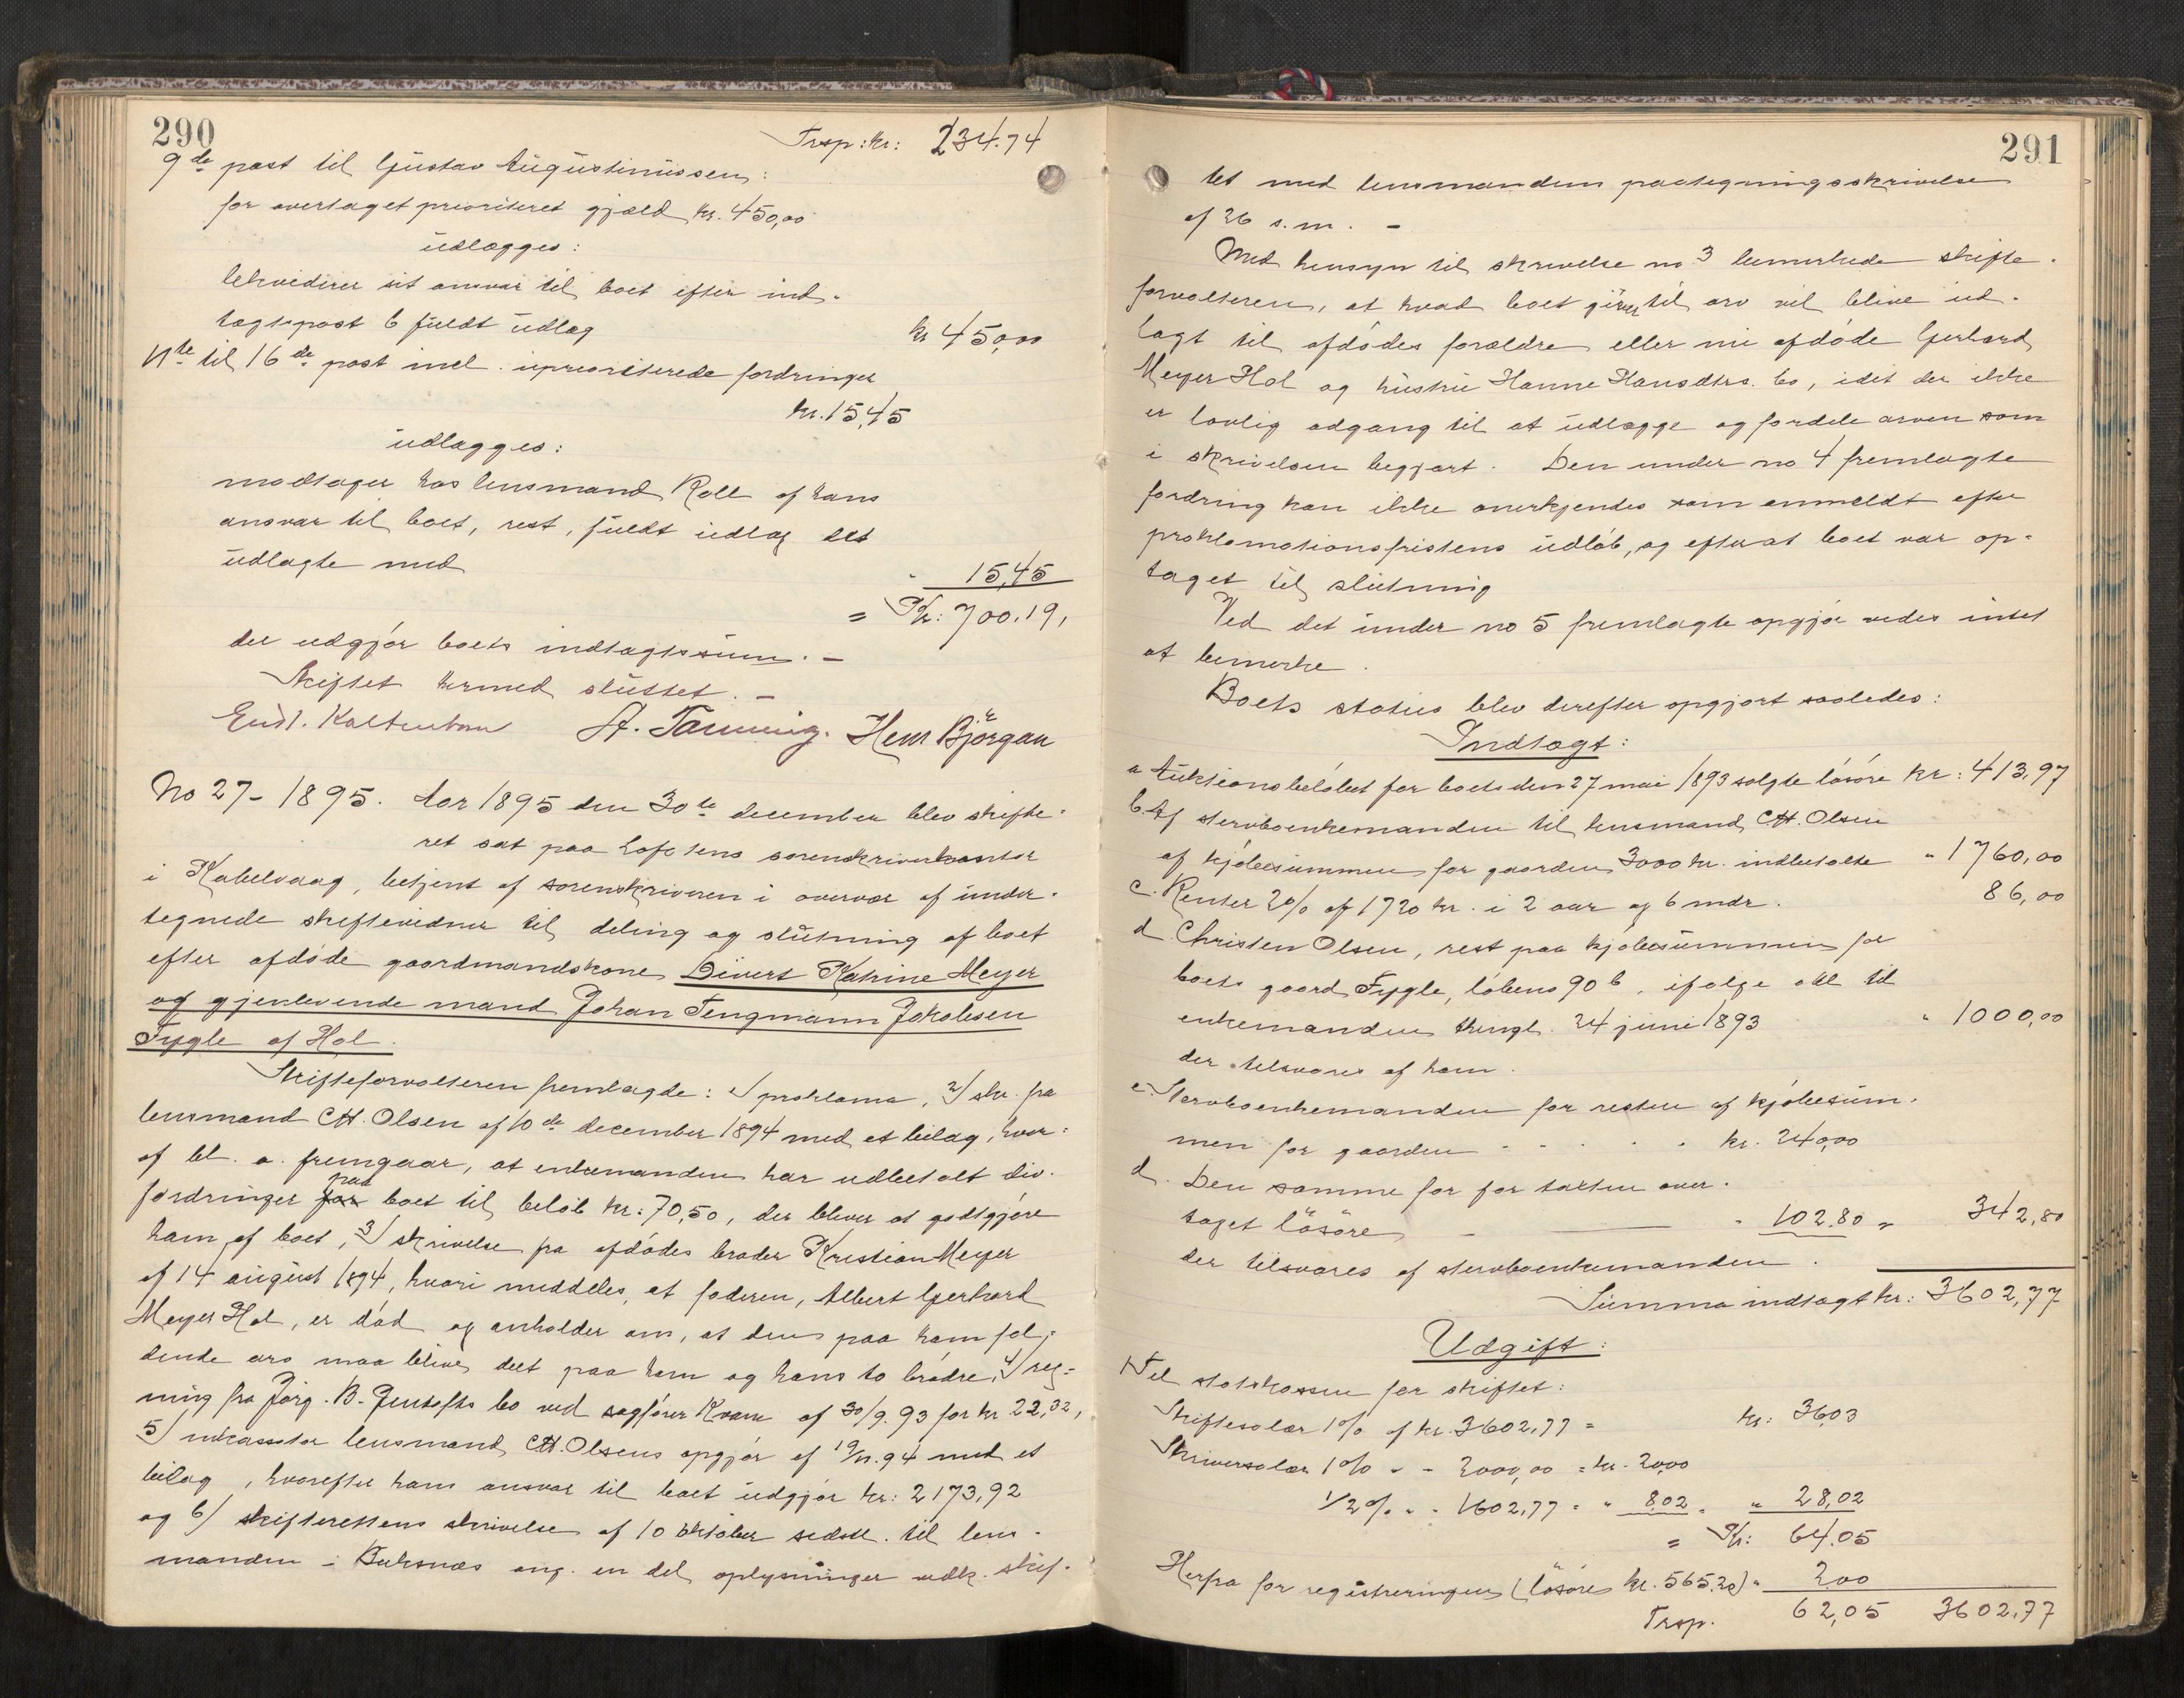 290
Trsp: kr: 234.74
9de post til Gustav Augustinussen:
for overtaget prioriteret gjæld kr. 450,00
udlægges:
lekviderer sit ansvar til boet efter ind-
tægtspost 6 fuldt udlæg kr 450,00
11te til 16de post incl. uprioriterede fordringer
kr. 15,45
udlægges:
modtager hos lensmand Roll af hans
ansvar til boet, rest, fuldt udlæg det
udlagte med " 15,45
= Kr: 700.19,
der udgjør boets indtægtssum. –
Skiftet hermed sluttet. –
A. Tanning. Hem Bjørgan
No 27 – 1895. Aar 1895 den 30te december blev skifte-
ret sat paa Lofotens sorenskriverkontor
i Kabelvaag, betjent af sorenskriveren i overvær af under-
tegnede skiftevidner til deling og slutning af boet
efter afdøde gaardmandskone Divert Katrine Meyer
og gjenlevende mand Johan Tengmann Jakobsen
Fygle af Hol.
Skifteforvalteren fremlagte: 1/ proklama, 2/ skr. fra
lensmand CH. Olsen af 10de december 1894 med et bilag, hvor-
af bl. a. fremgaar, at enkemanden har udbetalt div.
fordringer for paa boet til beløb kr: 70,50, der bliver at godtgjøre
ham af boet, 3/ skrivelse fra afdødes broder Kristian Meyer
af 14 august 1894, hvori meddeles, at faderen, Albert Gerhard
Meyer Hol, er død og anholder om, at den paa ham fal-
dende arv maa blive delt paa ham og hans to brødre, 4/ reg-
ning fra Jørg. B. Jentofts bo ved sagfører Kvam af 30/9. 93 for kr 22,32,
5/ inkassator lensmand CH. Olsens opgjør af 19/11. 94 med et
bilag, hvorefter hans ansvar til boet udgjør kr: 2173,92
og 6/ skifterettens skrivelse af 10 oktober sidstl. til lens-
manden i Buksnæs ang. en del oplysninger vedk. skif-
291
tet med lensmandens paategningsskrivelse
af 26 s.m. –
Med hensyn til skrivelse no 3 bemerkede skifte-
forvalteren, at hvad boet giver til arv vil blive ud-
lagt til afdødes forældre eller nu afdøde Gerhard
Meyer Hol og hustru Hanne Hansdtrs. bo, idet der ikke
er lovlig adgang til at udlægge og fordele arven som
i skrivelsen begjært. Den under no 4 fremlagte
fordring kan ikke anerkjendes som anmeldt efter
proklamationsfristens udløb, og efterat boet var op-
taget til slutning
Ved det under no 5 fremlagte opgjør vedes intet
at bemerke.
Boets status blev derefter opgjort saaledes:
Indtægt:
a Auktionsbeløbet for boets den 27 mai 1893 solgte løsøre kr: 413,97
b. Af stervboenkemanden til lensmand CH. Olsen
af kjøbesummen for gaarden 3000 kr. indbetalte " 1760,00
c. Renter 2% af 1720 kr. i 2 aar og 6 mdr. 86,00
d. Christen Olsen, rest paa kjøbesummen for
boets gaard Fygle, løbeno 90 b, ifølge skl til
enkemanden thingl. 24 juni 1893 " 1000,00
der tilsvares af ham.
e. Stervboenkemanden for resten af kjøbesum-
men for gaarden - - - - - kr. 240,00
d. Den samme for for taxten over-
taget løsøre – – " 102.80 = 342,80
der tilsvares af stervboenkemanden.
Summa indtægt kr: 3602,77
Udgift:
1 Til statskassen for skiftet:
Skiftesolær 1% af kr. 3602,77 = kr: 36,03
Skriversolær 1% " - 2000,00 = kr. 20,00
1/2% " - 1602,77 = " 8,02 = " 28,02
= Kr: 64.05
Herfra for registreringen (løsøre kr. 565.20) " 2,00
Trsp. 62,05 3602,77